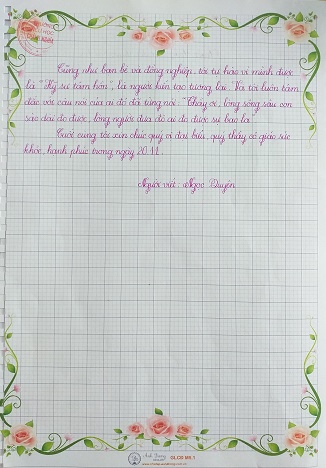 Cũng như bạn bè và đồng nghiệp, tôi tự hào vì mình được
là "Kỹ sư tâm hồn", là người kiến tạo tương lai. Và tôi luôn tâm
đắc với câu nói của ai đó đã từng nói: "Thầy ơi, lòng sông sâu con
sào dài đo được, lòng người đưa đò ai đo được sự bao la".
Cuối cùng tôi xin chúc quý vị đại biểu, quý thầy cô giáo sức
khỏe, hạnh phúc trong ngày 20.11.
Người viết: Ngọc Duyên
Anh Dương
GLCĐ MS 1